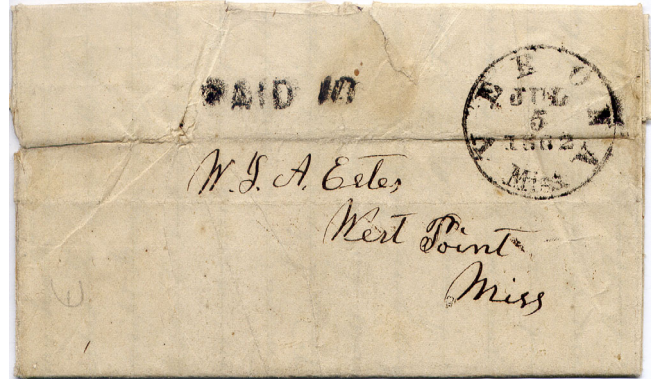 PAID 10
VERONA
JUL
5
1862
Miss
W. G. A. Estes
West Point
Miss